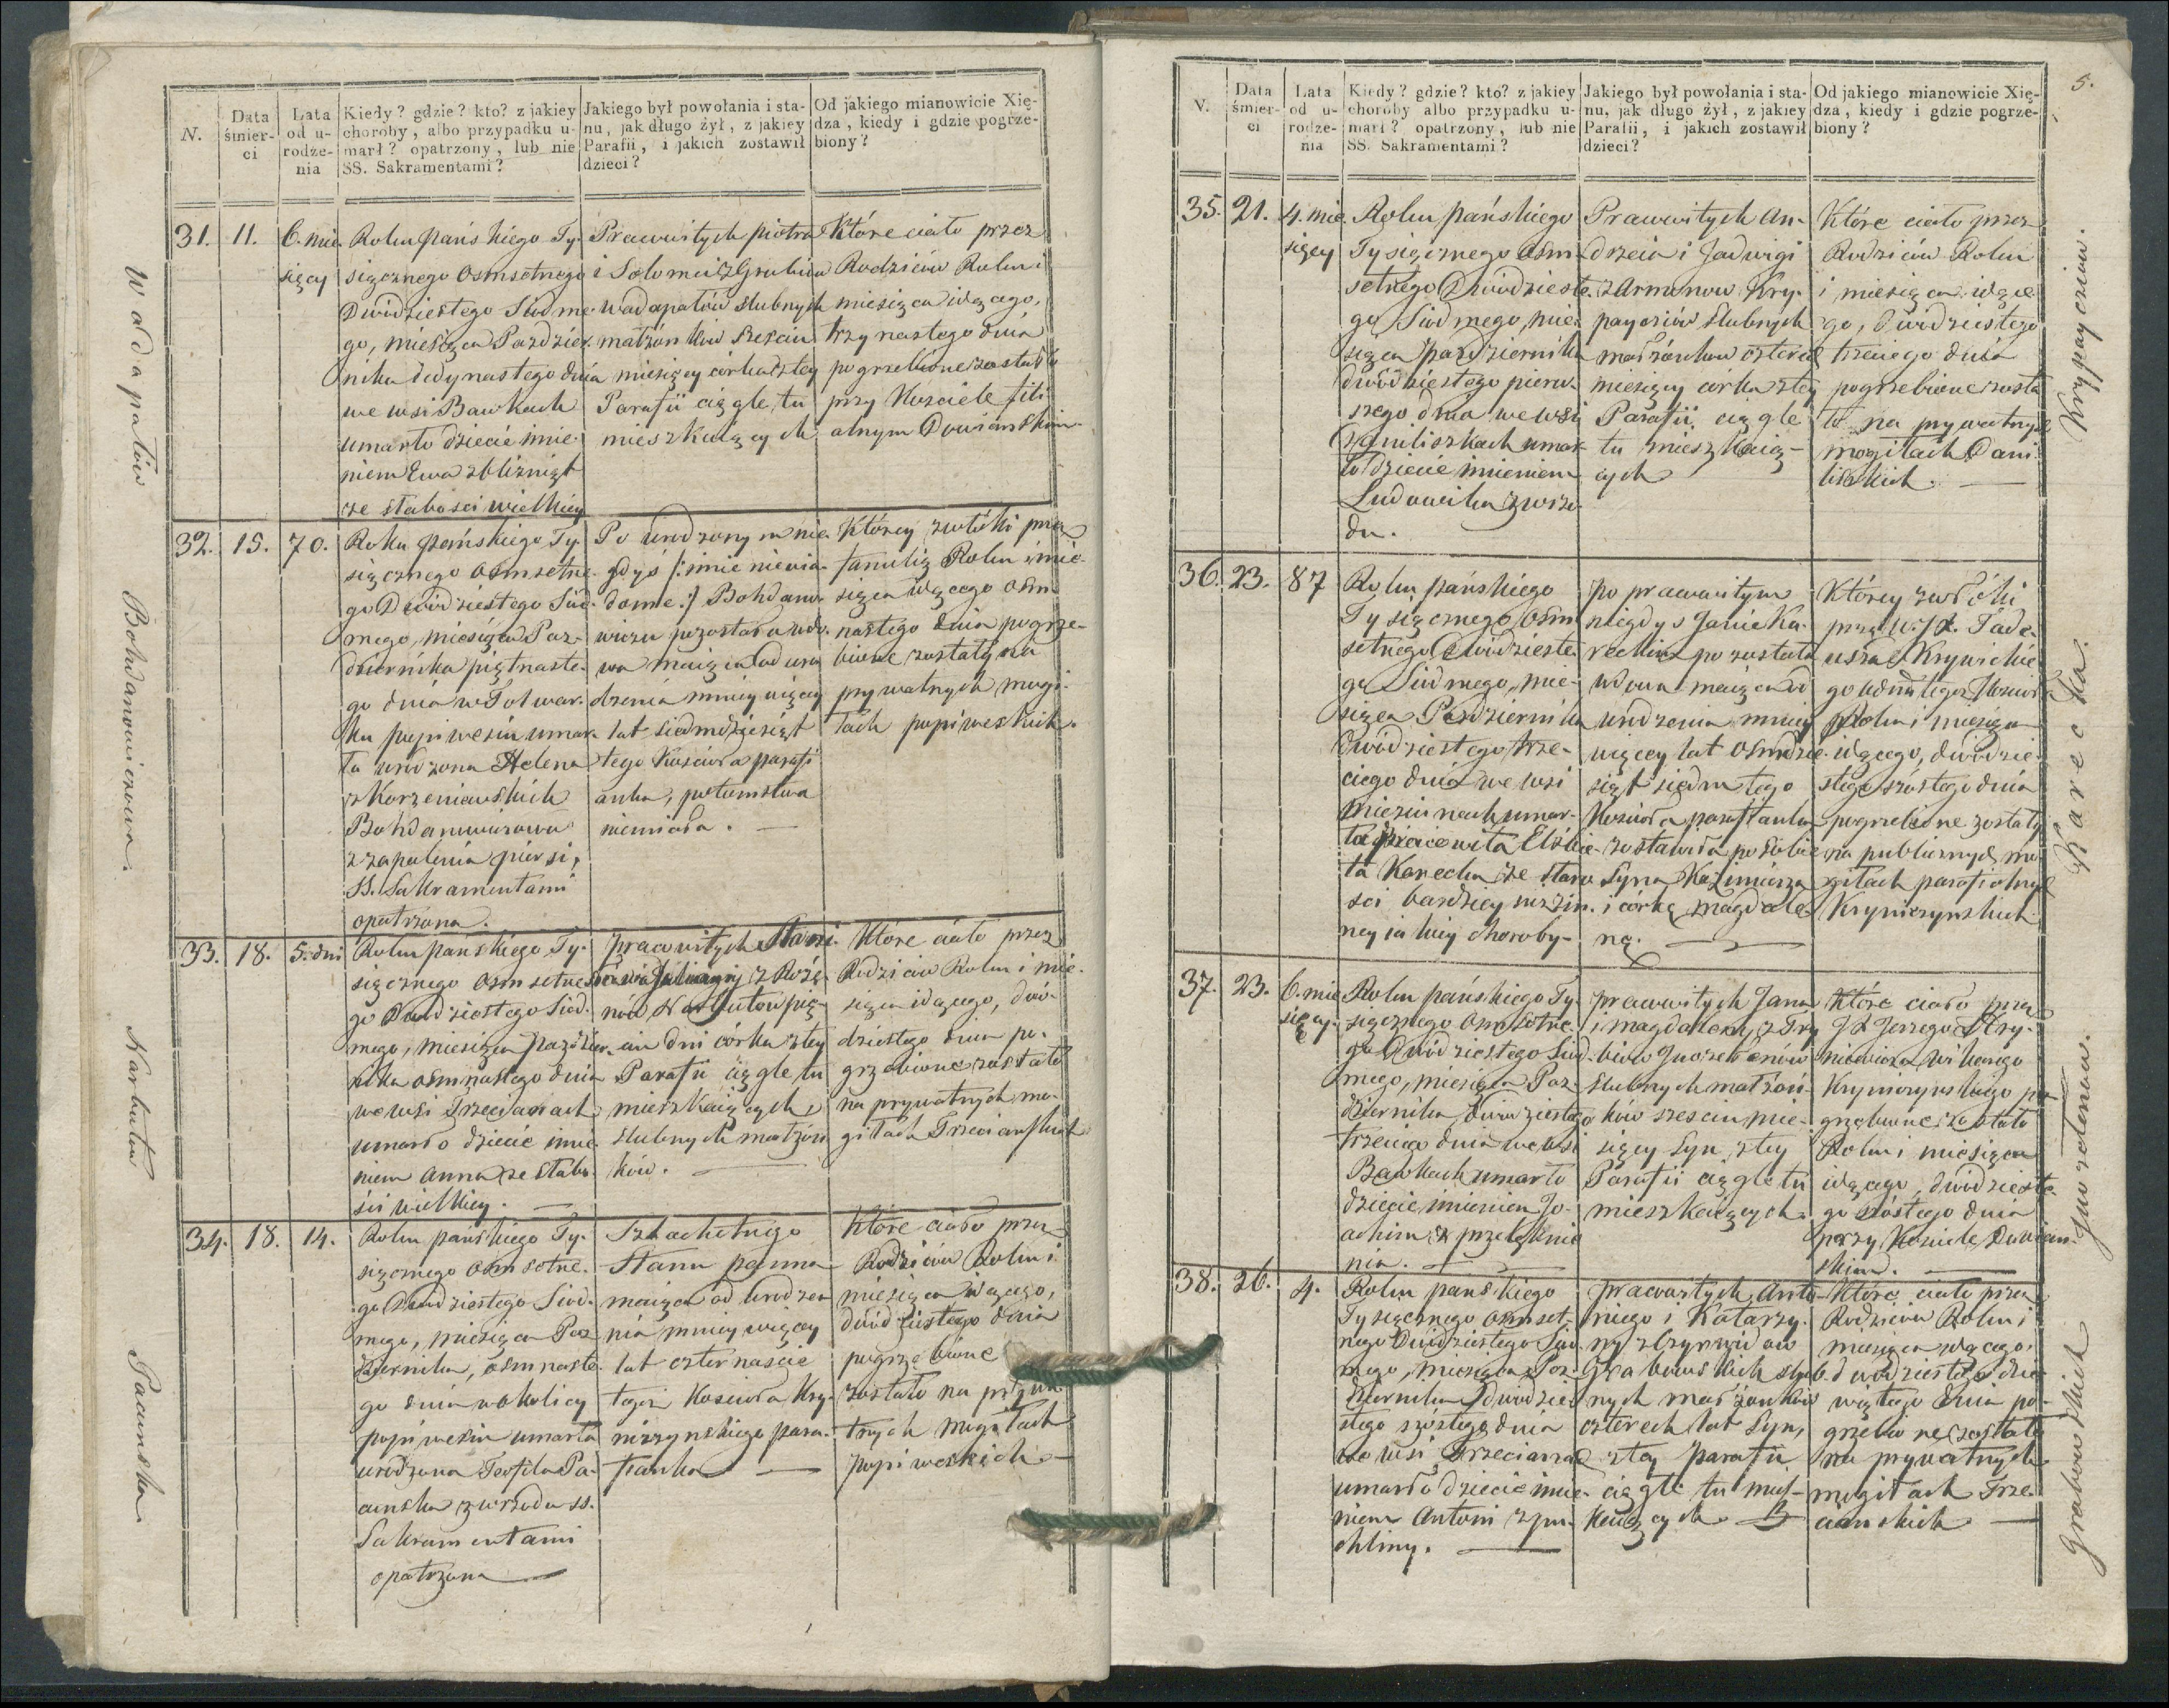 N.
Data śmierci
Lata od urodzenia
Kiedy? gdzie? kto? z jakiey
choroby, albo przypadku u-
marł? opatrzony, lub nie
SS. Sakramentami?
Jakiego był powołania i sta-
nu, jak długo żył, z jakiey
Parafii, i jakich zostawił
dzieci?
Od jakiego mianowicie Xię-
dza, kiedy i gdzie pogrze-
biony?
Wadapatów
31. 11. 6. mie-
sięcy
Roku Pańskiego Ty-
siącznego Osmsetnego
Dwódziestego Siódme-
go, miesiąca Paździer-
nika Jedynastego dnia
we wsi Bawkach
umarło dziecie imie-
niem Ewa z bliźniąt
ze słabości wielkiey
Prawowitych Piotra
i Solomei z
Wadapatów ślubnych
małżonków sześciu
miesięcy córka z tey
Parafii ciągle tu
mieszkaiących
Które ciało przez
Rodziców Roku i
miesiąca idącego,
trzynastego dnia
pogrzebione zostało
przy Kościele fili-
alnym
Bohdanowiczowa.
32. 15. 70.
Roku Pańskiego Ty-
siącznego Osmsetne-
go Dwódziestego Siód-
mego, miesiąca Paź-
dziernika piętnaste-
go dnia w Folwar-
ku popiweśiu umar-
ła urodzona Helena
z Korzeniewskich
Bohdanowiczowa
z zapalenia piersi,
SS. Sakramentami
opatrzona.
Po urodzonym nie-
gdyś /: imie niewia-
dome :/ Bohdano-
wiczu pozostała wdo-
wa maiąca od uro-
dzenia mniey więcey
lat siedmdziesiąt
tego Kościoła parafi-
anka, potomstwa
niemiała.
Którey zwłóki przez
familią Roku i mie-
siąca idącego osm-
nastego dnia pogrze-
bione zostały na
prywatnych mogi-
łach popiweskich.
Narbutow
33. 18. 5. dni
Roku pańskiego Ty-
siącznego Osmsetne-
go Dwódziestego Siód-
mego, miesiąca Paździer-
nika osmnastego dnia
we wsi Trzecianach
umarło dziecie imie-
niem Anna ze słabo-
ści wielkiey.
pracowitych Stani-
sława i Julianny z
Narbutow pię-
ciu dni córka z tey
Parafii ciągle tu
mieszkaiących,
ślubnych małżon-
ków.
Które ciało przez
Rodziców Roku i mie-
siąca idącego, dwó-
dziestego dnia po-
grzebione zostało
na prywatnych mo-
giłach Trzeciańskich
Pacunska.
34. 18. 14.
Roku pańskiego Ty-
siącznego Osmsetne-
go Dwódziestego Siód-
mego, miesiąca Paź-
dziernika, osmnaste-
go dnia w Okolicy
popiwesiu umarła
urodzona Teofila Pa-
cunska z wrzodu SS.
Sakramentami
opatrzona
Szlachetnego
Stanu panna
maiąca od urodze-
nia mniey więcey
lat czternaście
tegoż Kościoła Kry-
niczynskiego para-
fianka
Które ciało przez
Rodziców Roku i
miesiąca idącego,
dwódziestego dnia
pogrzebione
zostało na prywa-
tnych mogiłach
popiweskich
5.
N.
Data śmierci
Lata od urodzenia
Kiedy? gdzie? kto? z jakiey
choroby albo przypadku u-
marł? opatrzony, lub nie
SS. Sakramentami?
Jakiego był powołania i sta-
nu, jak długo żył, z jakiey
Parafii, i jakich zostawił
dzieci?
Od jakiego mianowicie Xię-
dza, kiedy i gdzie pogrze-
biony?
Krypayciow.
35. 21. 4. mie-
sięcy
Roku pańskiego
Tysiącznego Osm-
setnego Dwódzieste-
go Siódmego, mie-
siąca października
dwódziestego pierw-
szego dnia we wsi
umar-
ło dziecie imieniem
Ludowika z wrzo-
du.
Prawowitych An-
drzeia i Jadwigi
z Kry-
payciów ślubnych
małżonków czterech
miesięcy córka z tey
Parafii ciągle
tu mieszkaią-
cych
Które ciało przez
Rodziców Roku
i miesiąca idące-
go, dwódziestego
trzeciego dnia
pogrzebione zosta-
ło na prywatnych
mogiłach Dani-
liskich.
Karecka.
36. 23. 87
Roku pańskiego
Tysiącznego Osm-
setnego Dwódzieste-
go Siódmego, mie-
siąca Października
dwódziestego trze-
ciego dnia we wsi
umar-
ła pracowita Elżbie-
ta Karecka ze staro-
ści bardziey niż in-
ney iakiey choroby
po pracowitym
niegdyś Janie Ka-
reckim pozostała
wdowa maiąca od
urodzenia mniey
więcey lat osmdzie-
siąt siedm tego
Kościoła parafianka
zostawiła po sobie
Syna Kazimierza
i córkę Magdale-
nę.
Którey zwłóki
przez W. JX. Tade-
usza
Roku i miesiąca
idącego, dwódzie-
stego szóstego dnia
pogrzebione zostały
na publicznych mo-
giłach parafialnych
Kryniczynskich
Juozotenow.
37. 23. 6. mie-
sięcy.
Roku pańskiego Ty-
siącznego Osmsetne-
go Dwódziestego Siód-
mego, miesiąca Paź-
dziernika dwódziestego
trzeciego dnia we wsi
Bawkach umarło
dziecie imieniem Jo-
achim z przelęknie-
nia.
pracowitych Jana
i Magdaleny z
ślubnych małżon-
ków sześciu mie-
sięcy Syn, z tey
Parafii ciągle tu
mieszkaiących.
Które ciało przez
JX Jerzego
Wikarego
Kryniczynskiego po-
grzebione zostało
Roku i miesiąca
idącego, dwódzieste-
go szóstego dnia
przy Kościele
Grabowskich
38. 26. 4.
Roku pańskiego
Tysiącznego Osmset-
nego Dwódziestego Siód-
mego, miesiąca Paź-
dziernika dwódzie-
stego szóstego dnia
we wsi Trzecianach
umarło dziecie imie-
niem Antoni z pu-
chliny.
pracowitych Anto-
niego i Katarzy-
ny z
Grabowskich ślub-
nych małżonków
czterech lat Syn,
z tey parafii
ciągle tu miesz-
kaiących.
Które ciało przez
Rodziców Roku i
miesiąca idącego,
dwódziestego dzie-
wiątego dnia po-
grzebione zostało
na prywatnych
mogiłach Trze-
cianskich